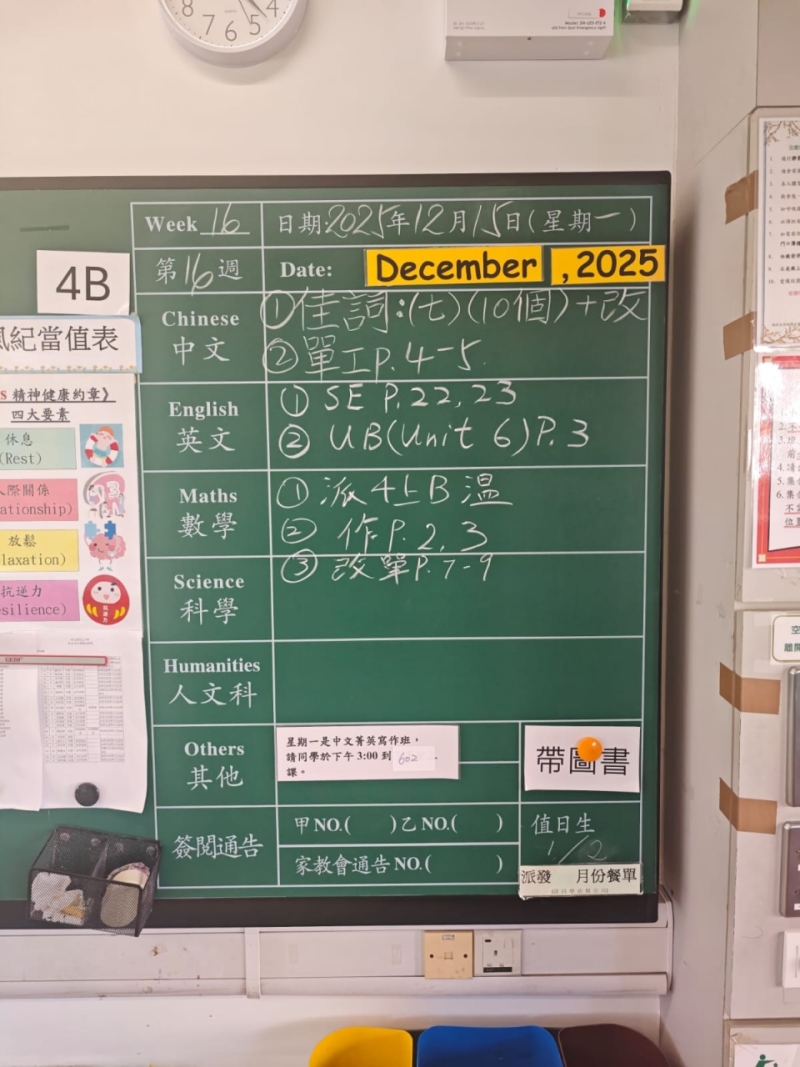 8 7 6 5 4
Week 16
日期:2025年12月15日(星期一)
第16週
Date:
December , 2025
4B
Chinese
中文
①佳詞:(七)(10個)+改
②單工P.4-5
English
英文
① SE P.22,23
② UB(Unit 6)P.3
Maths
數學
① 派4上B 溫
② 作P.2,3
③ 改單P.7-9
Science
科學
Humanities
人文科
Others
其他
星期一是中文菁英寫作班，
請同學於下午 3:00 到 602
課。
帶圖書
簽閱通告
甲NO.( )乙NO.( )
家教會通告NO.( )
值日生
1/2
派發 月份餐單
風紀當值表
精神健康約章》
四大要素
休息
(Rest)
人際關係
ationship)
放鬆
laxation)
抗逆力
esilience)